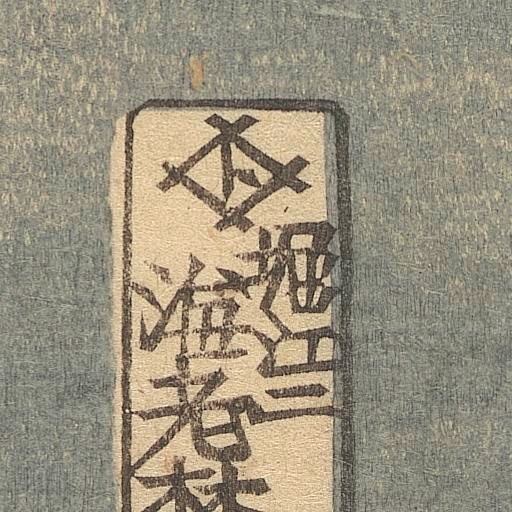 堀江二
海老林